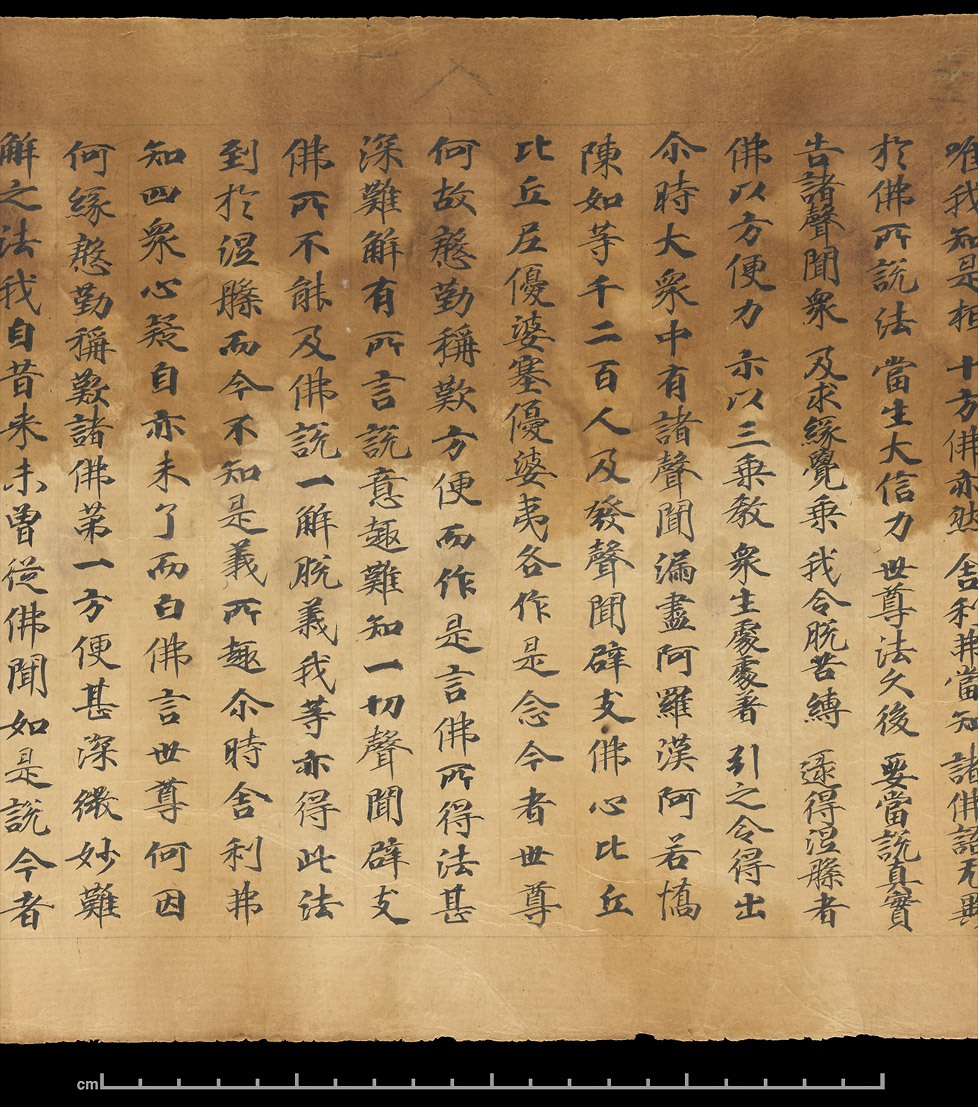 唯我知是相 十方佛亦然 舍利弗當知 諸佛語无異
於佛所說法 當生大信力 世尊法久後 要當說真實
告諸聲聞衆 及求緣覺乘 我令脫苦縛 逮得涅槃者
佛以方便力 示以三乘教 衆生處處著 引之令得出
尒時大衆中有諸聲聞漏盡阿羅漢阿若憍
陳如等千二百人及發聲聞辟支佛心比丘
比丘尼優婆塞優婆夷各作是念今者世尊
何故慇勤稱歎方便而作是言佛所得法甚
深難解有所言說意趣難知一切聲聞辟支
佛所不能及佛說一解脫義我等亦得此法
到於涅槃而今不知是義所趣尒時舍利弗
知四衆心疑自亦未了而白佛言世尊何因
何緣慇勤稱歎諸佛第一方便甚深微妙難
解之法我自昔來未曾從佛聞如是說今者
cm